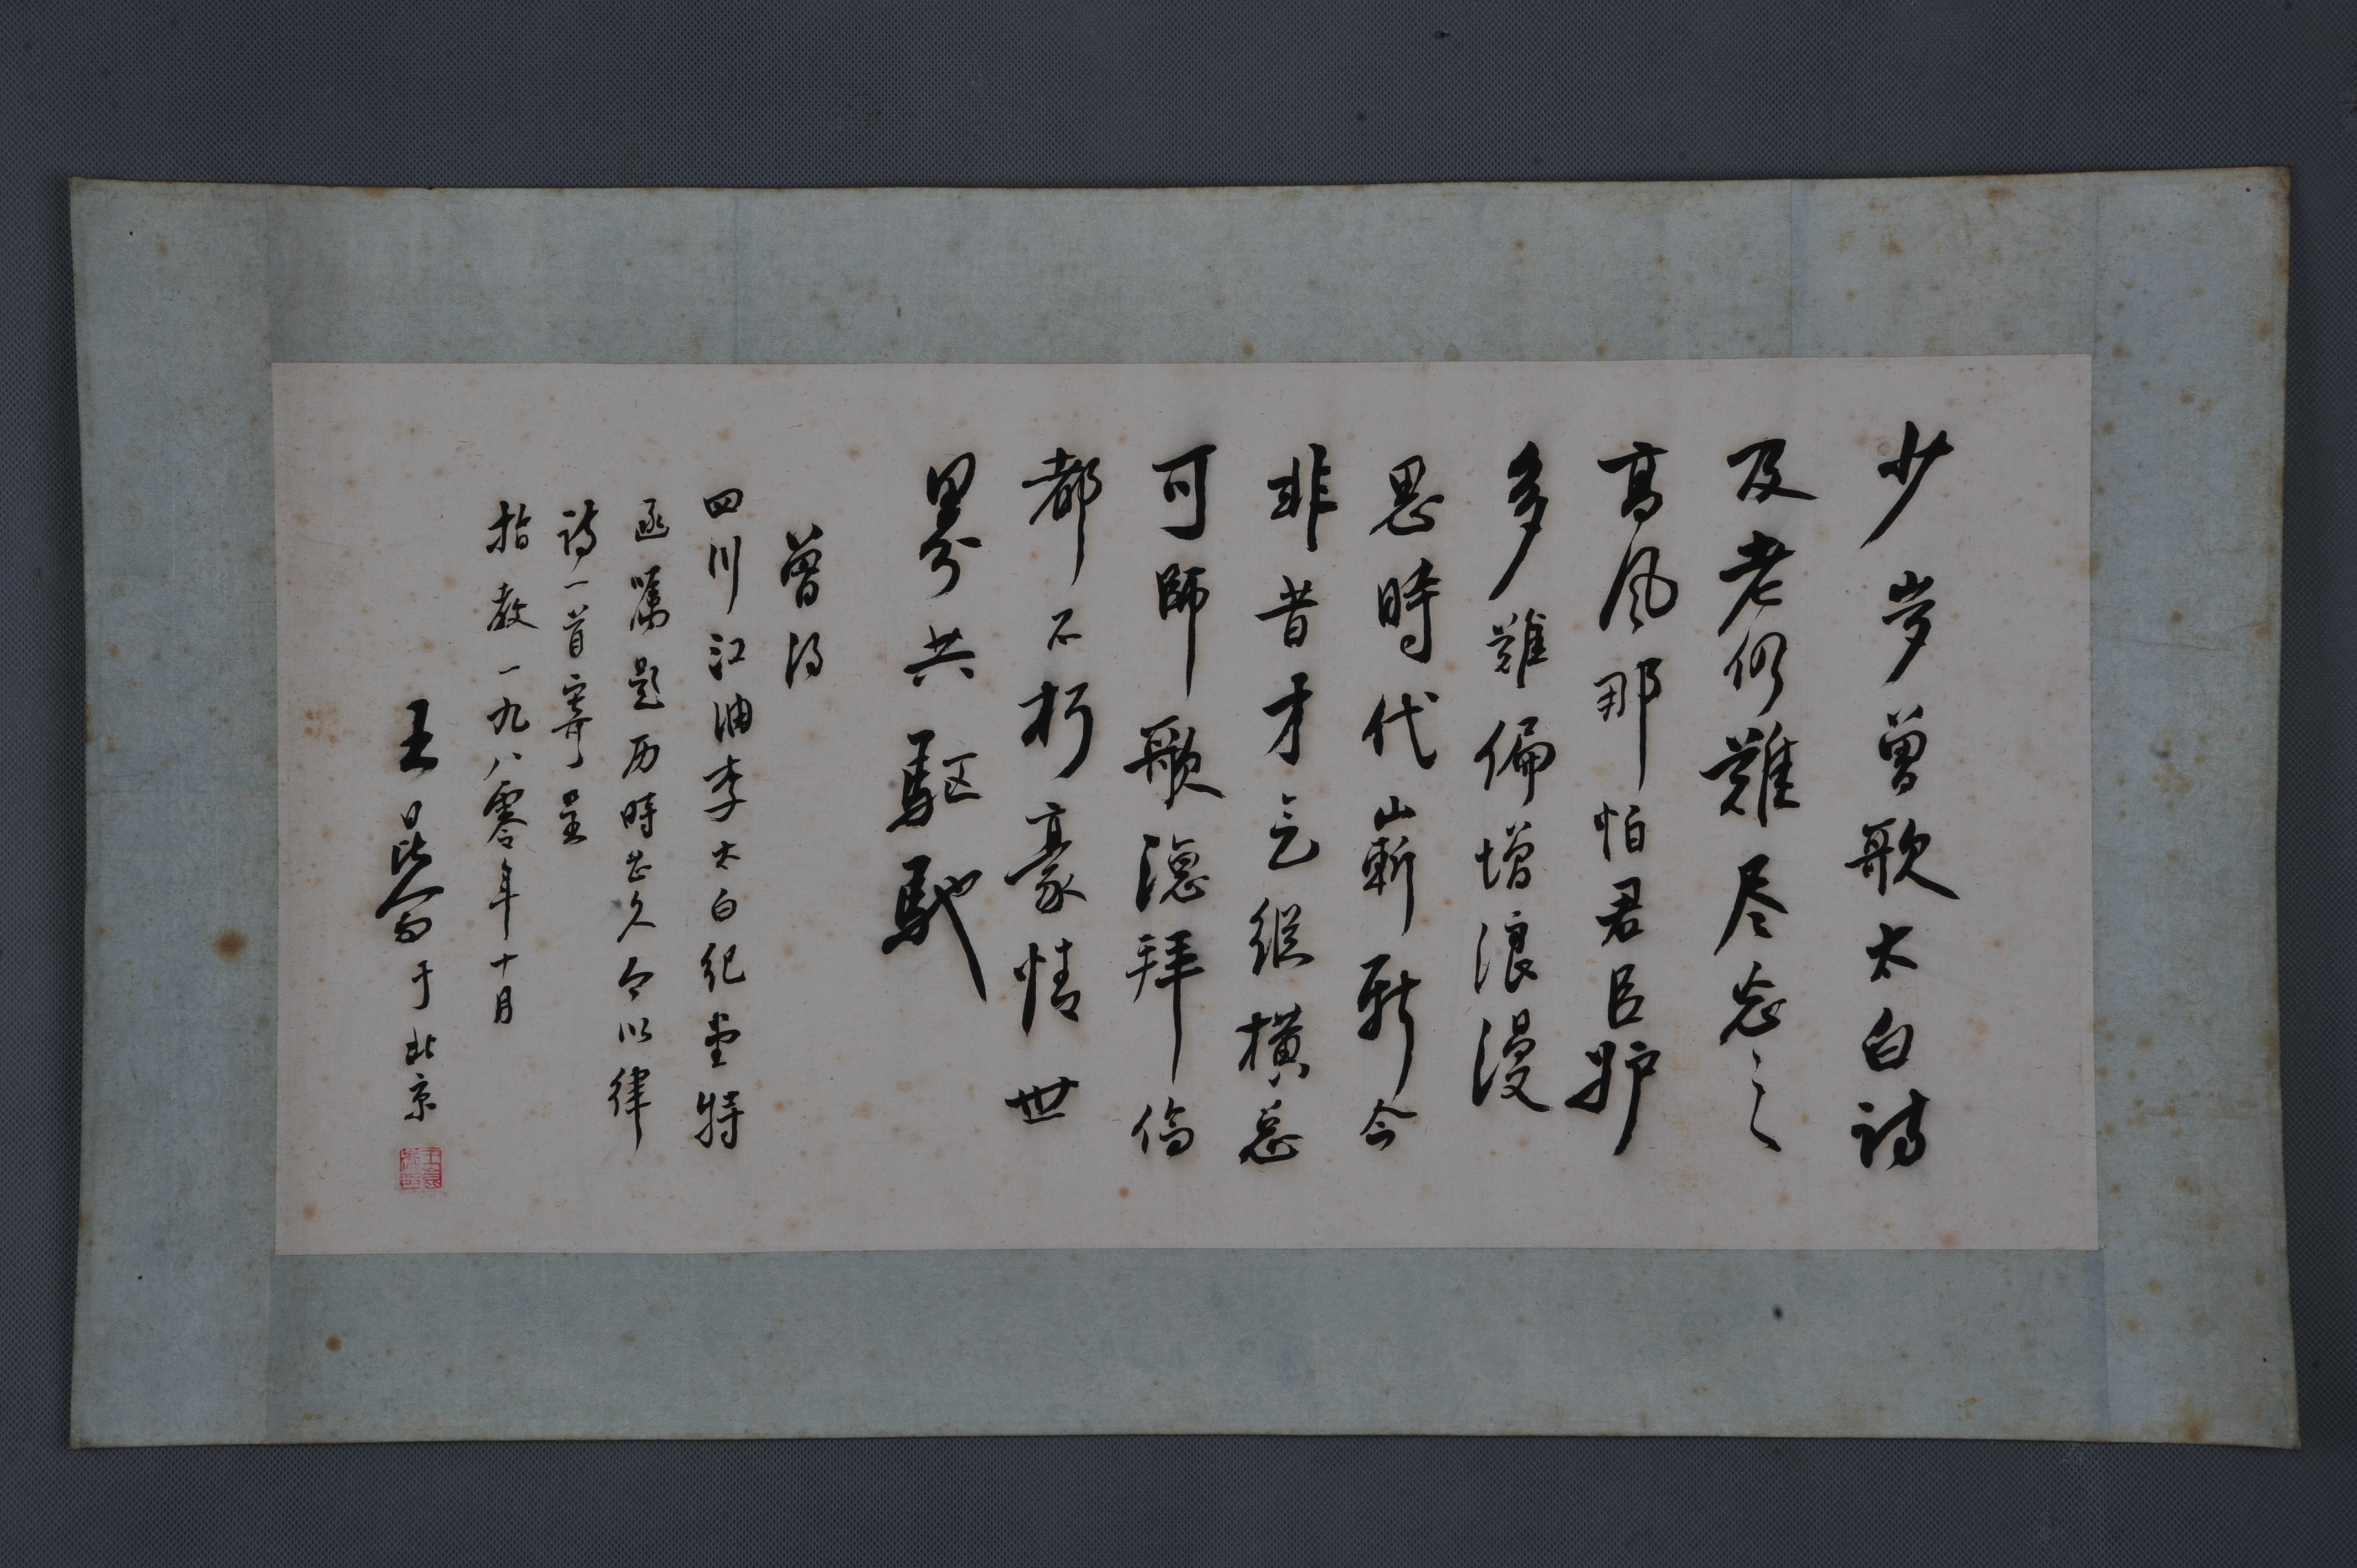 少岁曾歌太白诗
及老仍難尽忘之
高风那怕君臣妒
多難偏增浪漫
思時代嶄新今
非昔才气縱横总
可師歌德拜倫
都不朽豪情世
界共驅馳
曾得
四川江油李太白纪堂特
函嘱题历時甚久今以律
诗一首寄呈
指教一九八零年十月
王昆侖于北京